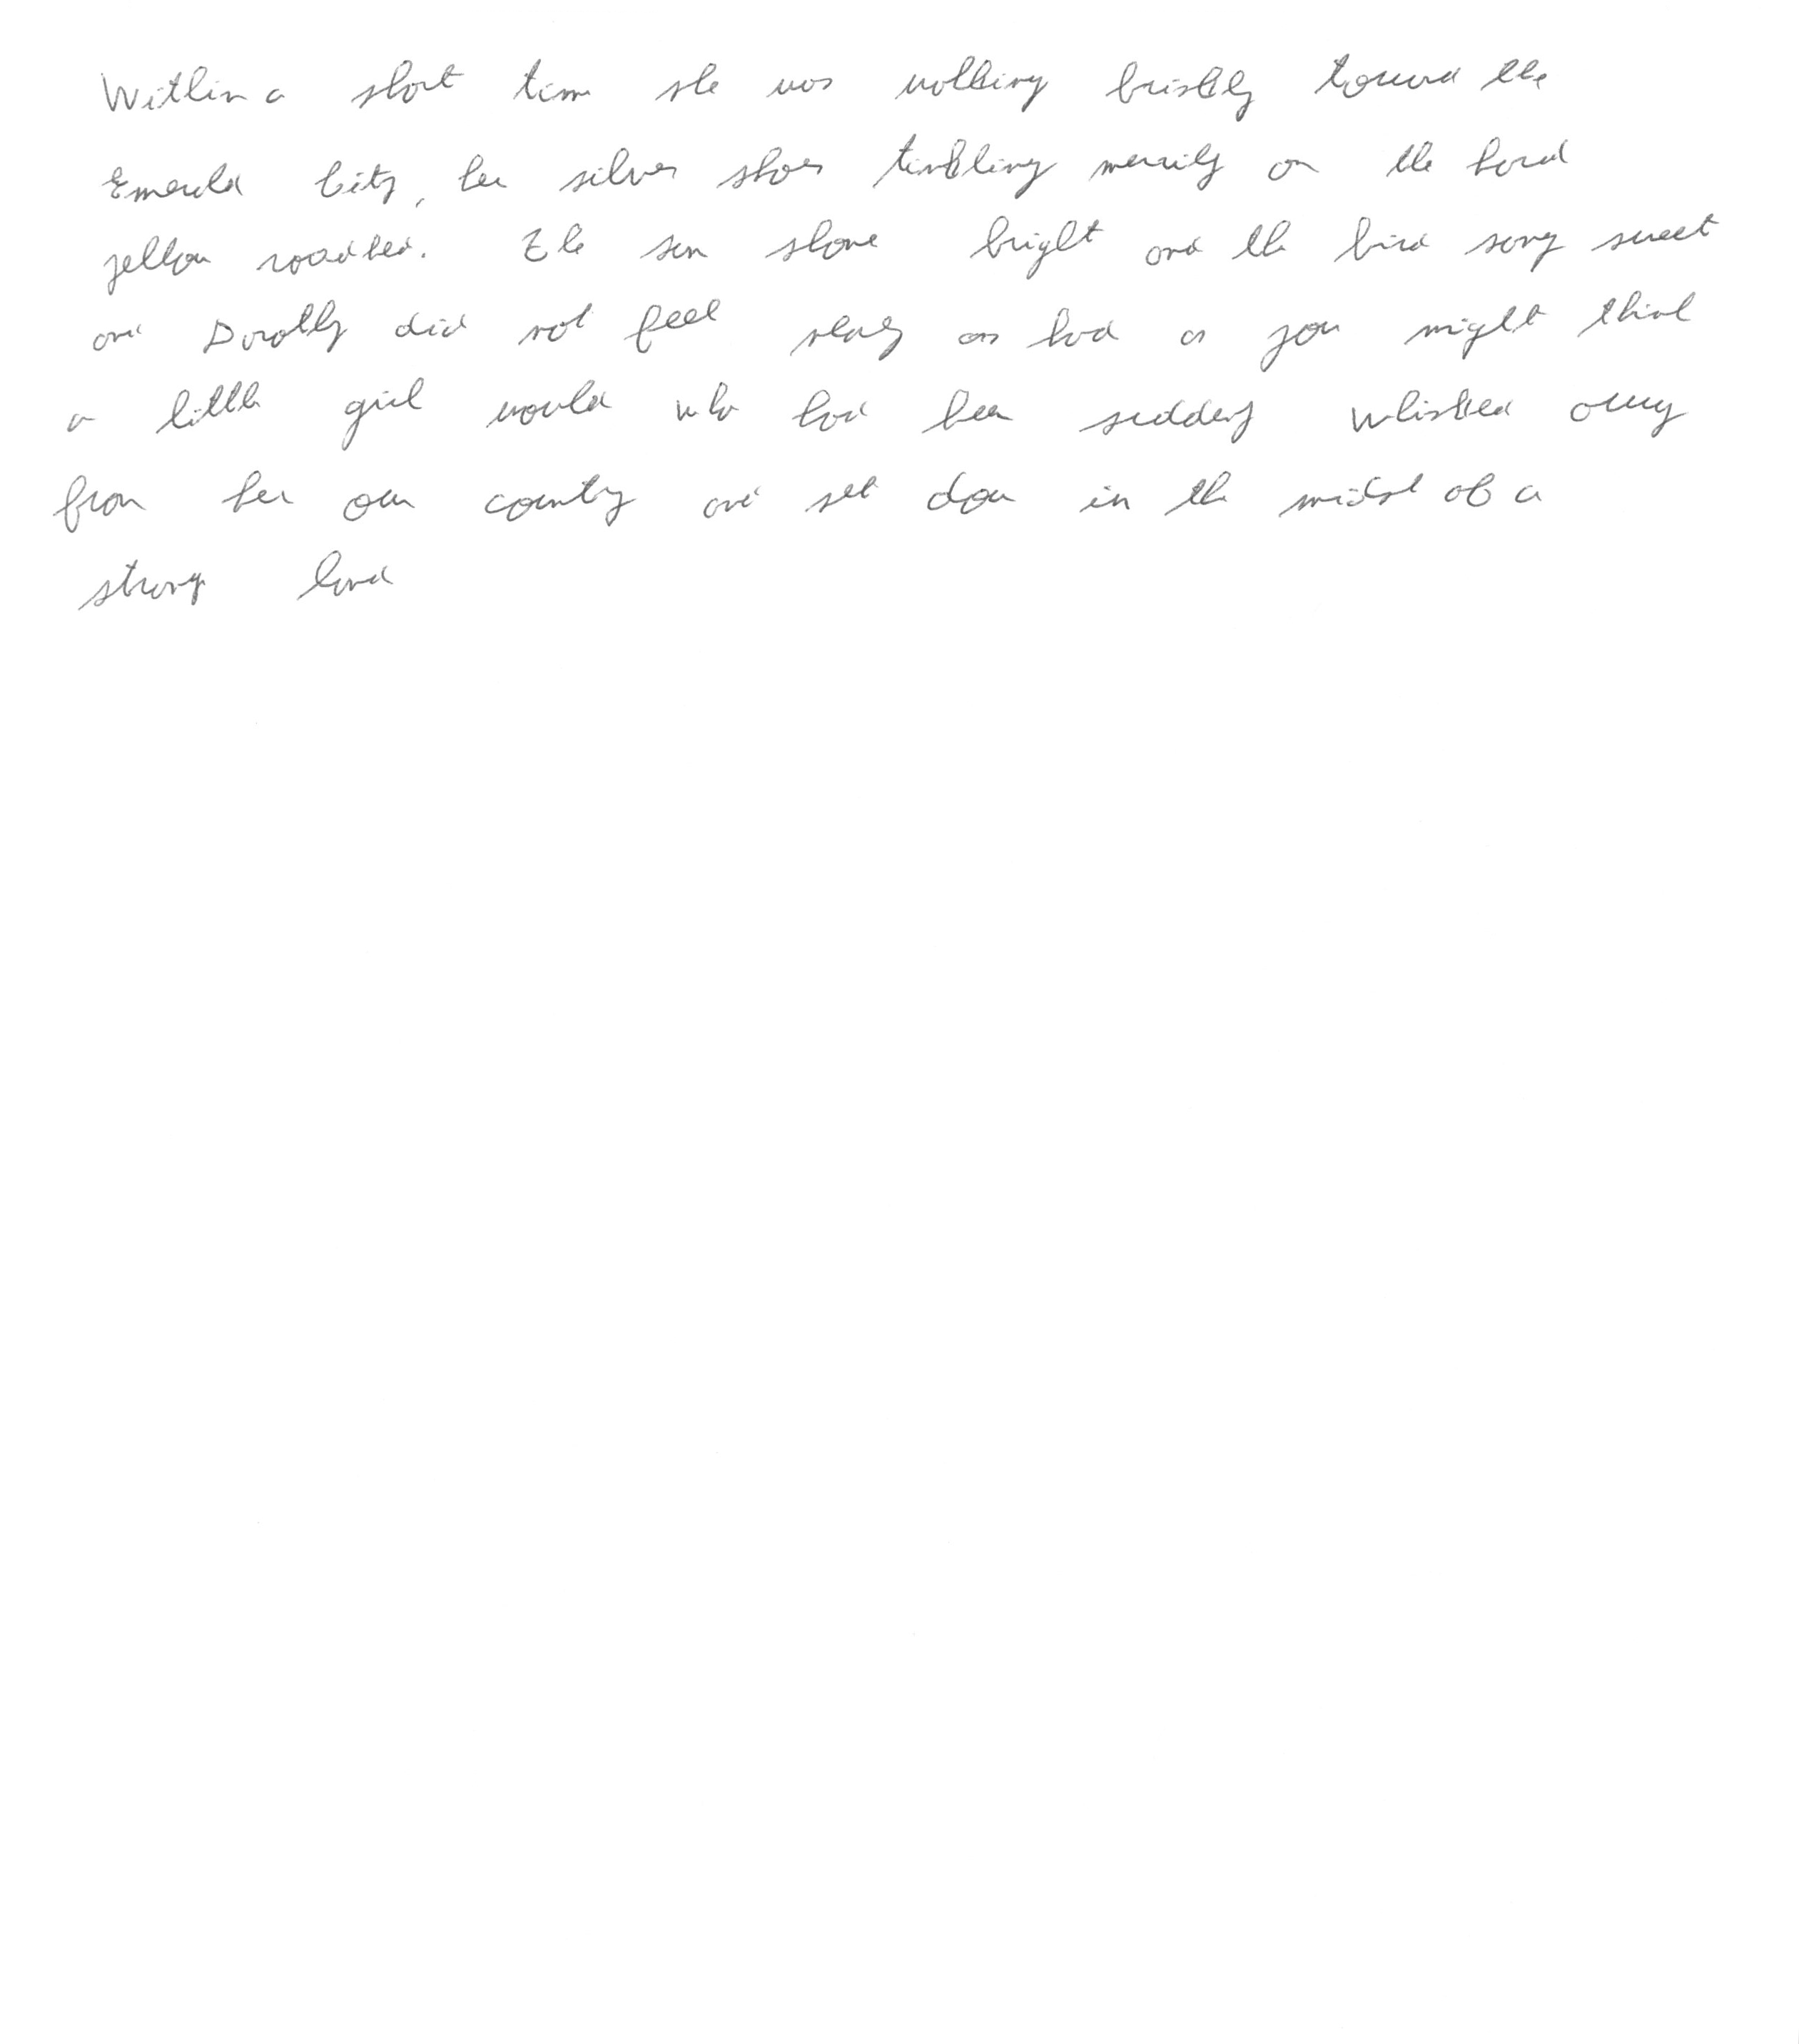 Within a short time she was walking briskly toward the
Emerald City, her silver shoes tinkling merrily on the hard
yellow roadbed. The sun shone bright and the bird sang sweet
and Dorothy did not feel nearly as bad as you might think
a little girl would who had been suddenly whisked away
from her own country and set down in the midst of a
strang land